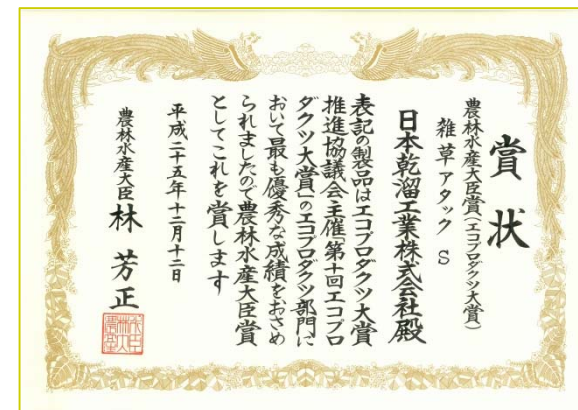 賞状
農林水産大臣賞(エコプロダクツ大賞)
雑草アタックS
日本乾溜工業株式会社殿
表記の製品はエコプロダクツ大賞
推進協議会主催「第十回エコプロ
ダクツ大賞」のエコプロダクツ部門に
おいて最も優秀な成績をおさめ
られましたので農林水産大臣賞
としてこれを賞します
平成二十五年十二月十二日
農林水産大臣 林 芳正